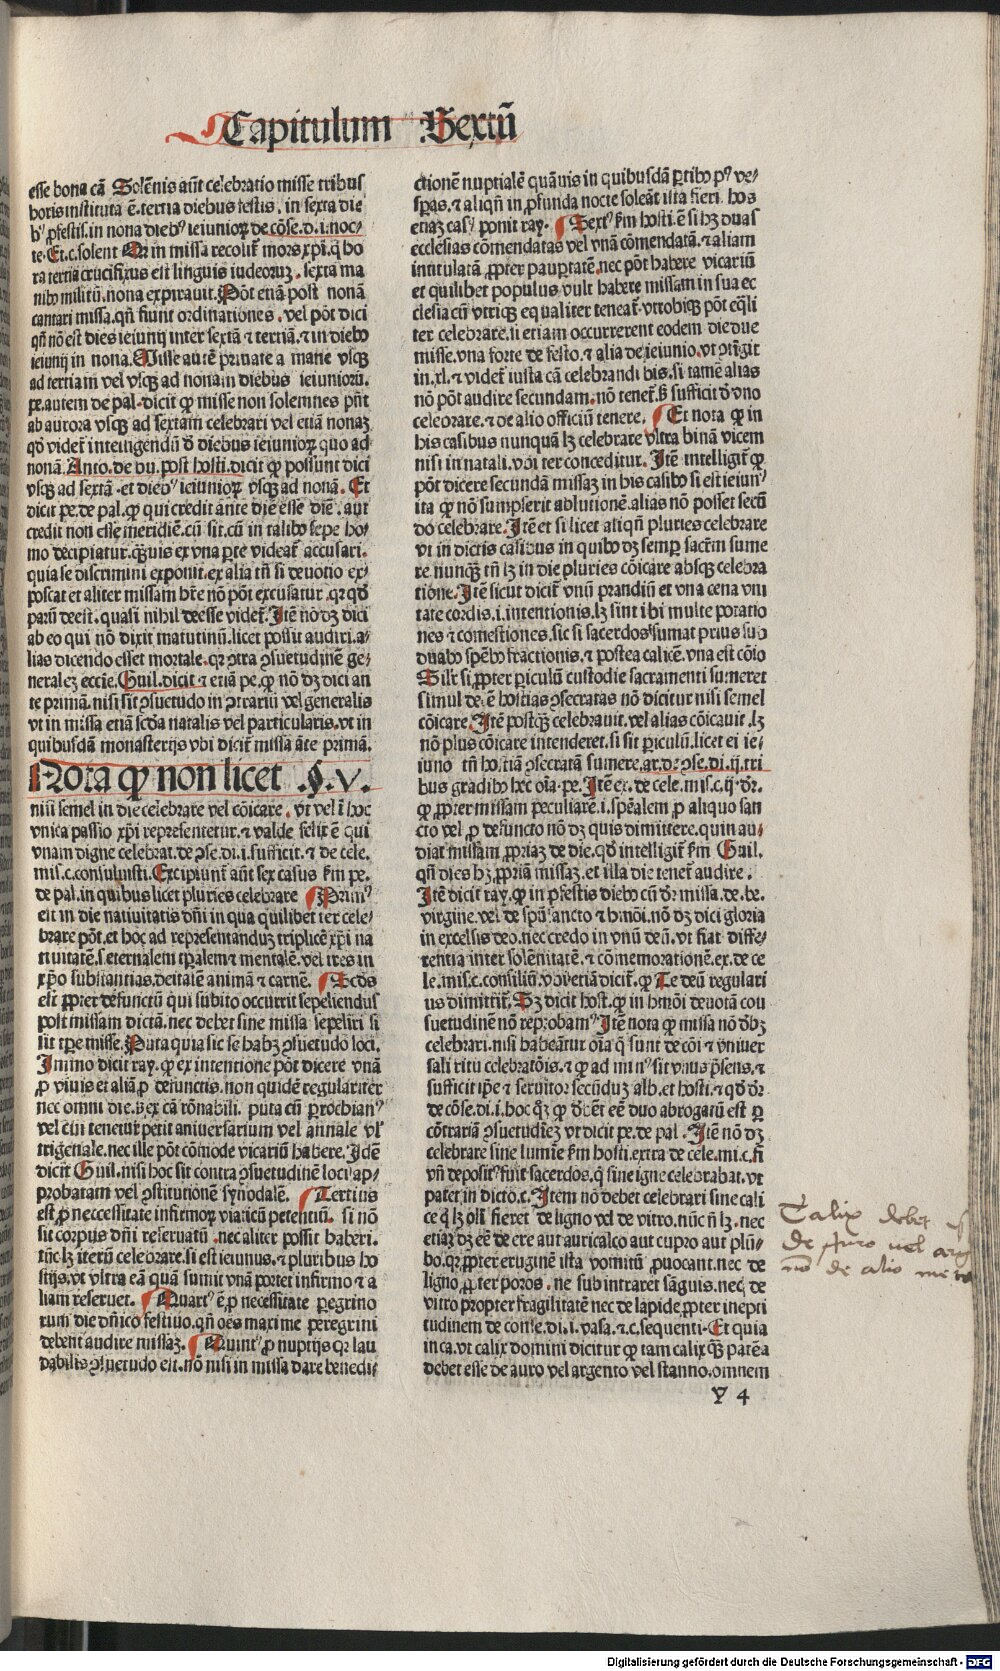 Capitulum Sextū
esse bona cā Solēnis aūt celebratio misse tribus
horis instituta ē. tertia diebus festis. in sexta die
bꝰ ꝓfestis. in nona diebꝰ ieiunioꝝ de cōse. d. i. noc-
te. Et. c. solent Qr in missa recolit᷑ mors xp̄i. q̄ ho
ra tertia crucifixus est linguis iudeoruꝫ. sexta ma
nibꝰ militū. nona expirauit. Pōt etiā post nonā
cantari missa. qn̄ fiunt ordinationes. vel pōt dici
qn̄ nō est dies ieiunij inter sextā ⁊ tertiā. ⁊ in diebꝰ
ieiunij in nona. Misse autē priuate a mane vsqꝫ
ad tertiam vel vsqꝫ ad nonam diebus ieiunioru.
pe. autem de pal. dicit ꝙ misse non solemnes pn̄t
ab aurora vsqꝫ ad sextam celebrari vel etiā nonaꝫ
qd̄ videt᷑ intelligendū d̄ diebus ieiunioꝝ quo ad
nonā. Anto. de bu. post hosti. dicit ꝙ possunt dici
vsqꝫ ad sextā. et diebꝰ ieiunioꝝ vsqꝫ ad nonā. Et
dicit pe. de pal. ꝙ qui credit ante diē esse diē. aut
credit non esse meridiē. cū sit. cū in talibꝰ sepe ho-
mo decipiatur. qꝫuis ex vna ꝑte videat᷑ accusari.
quia se discrimini exponit. ex alia tn̄ si deuotio ex-
poscat et aliter missam hr̄e nō pōt excusatur. qꝛ qd̄
parū deest. quasi nihil deesse videt᷑. Itē nō dꝫ dici
ab eo qui nō dixit matutinū. licet possit audiri. a-
lias dicendo esset mortale. qꝛ ꝯtra ꝯsuetudinē ge-
neraleꝫ eccie. Guil. dicit ⁊ etiā pe. ꝙ nō dꝫ dici an
te primā. nisi sit ꝯsuetudo in ꝯtrariū vel generalis
vt in missa etiā scd̄a natalis vel particularis. vt in
quibusdā monasterijs vbi dicit᷑ missa āte primā.
Nota ꝙ non licet .§. V.
nisi semel in die celebrare vel cōicare. vt vel ī hoc
vnica passio xp̄i representetur. ⁊ valde felix ē qui
vnam digne celebrat. de ꝯse. di. i. sufficit. ⁊ de cele.
mis. c. consuluisti. Excipiunt᷑ aūt sex casus ẜm pe.
de pal. in quibus licet pluries celebrare Primꝰ
est in die natiuitatis dn̄i in qua quilibet ter cele-
brare pōt. et hoc ad representanduꝫ triplicē xp̄i na
tiuitatē. s. eternalem tꝑalem ⁊ mentalē. vel tres in
xp̄o substantias. deitatē animā ⁊ carnē. Scd̄s
est ꝓpter defunctū qui subito occurrit sepeliendus
post missam dictā. nec debet sine missa sepeliri si
sit tꝑe misse. Puta quia sic se habꝫ ꝯsuetudo loci.
Immo dicit ray. ꝙ ex intentione pōt dicere vnā
ꝓ viuis et aliā ꝓ defunctis. non quidē regulariter
nec omni die. sꝫ ex cā rōnabili. puta cū ꝑrochianꝰ
vel cui tenetur petit aniuersarium vel annale vl᷑
trigenale. nec ille pōt cōmode vicariū habere. Idē
dicit Guil. nisi hoc sit contra ꝯsuetudinē loci ap-
probatam vel ꝯstitutionē synodalē. Tertius
est ꝓ neccessitate infirmoꝝ viaticū petentiū. si nō
sit corpus dn̄i reseruatū. nec aliter possit haberi.
tūc lꝫ iterū celebrare. si est ieiunus. ⁊ pluribus ho
stijs. vt vltra eā quā sumit vnā portet infirmo ⁊ a
liam reseruet. Quartꝰ ē ꝓ necessitate ꝑegrino
rum die dn̄ico festiuo. qn̄ oēs maxime peregrini
debent audire missaꝫ. Quintꝰ ꝓ nuptijs qꝛ lau
dabilis ꝯsuetudo est. nō nisi in missa dare benedi-
ctionē nuptialē quāuis in quibusdā ꝑtibꝰ pꝰ ve-
speras. ⁊ aliqn̄ in ꝓfunda nocte soleāt ista fieri. hos
etiaꝫ casꝰ ponit ray. Sextꝰ ẜm hosti. ē si hꝫ duas
ecclesias cōmendatas vel vnā cōmendatā. ⁊ aliam
intitulatā ꝓpter pauꝑtatē. nec pōt habere vicariū
et quilibet populus vult habere missam in sua ec
clesia cū vtriqꝫ equaliter teneat᷑. vtrobiqꝫ pōt eq̄li
ter celebrare. si etiam occurrerent eodem die due
misse. vna forte de festo. ⁊ alia de ieiunio. vt ꝯtīgit
in. xl. ⁊ videt᷑ iusta cā celebrandi bis. si tamē alias
nō pōt audire secundam. nō tenet᷑. sꝫ sufficit d̄ vno
celebrare. ⁊ de alio officiū tenere. Et nota ꝙ in
his casibus nunquā lꝫ celebrare vltra binā vicem
nisi in natali. vbi ter conceditur. Itē intelligit᷑ ꝙ
pōt dicere secundā missaꝫ in his casibꝰ si est ieiunꝰ
ita ꝙ nō sumpserit ablutionē. alias nō posset secū
do celebrare. Itē et si licet aliqn̄ pluries celebrare
vt in dictis casibus in quibꝰ dꝫ semꝑ sacr̄m sume
re. nunqꝫ tn̄ lꝫ in die pluries cōicare absqꝫ celebra
tione. Itē sicut dicit᷑ vnū prandiū et vna cena vni
tate cordis. i. intentionis. lꝫ sint ibi multe potatio
nes ⁊ comestiones. sic si sacerdos sumat prius sub
duabꝰ spēbꝰ fractionis. ⁊ postea calicē. vna est cōio
Silr̄ si ꝓpter ꝑiculū custodie sacramenti sumeret
simul de. ē hostias ꝯsecratas nō dicitur nisi semel
cōicare. Itē postqꝫ celebrauit. vel alias cōicauit. lꝫ
nō plus cōicare intenderet. si sit ꝑiculū. licet ei ie-
iuno tn̄ hostiā ꝯsecratā sumere. ar. de ꝯse. di. ij. tri
bus gradibꝰ hec oīa. pe. Itē ex. de cele. mis. c. ij. dr̄.
ꝙ ꝓpter missam peculiarē. i. spēalem ꝓ aliquo san
cto vel ꝓ defuncto nō dꝫ quis dimittere. quin au-
diat missam ꝓpriaꝫ de die. qd̄ intelligit᷑ ẜm Guil.
qn̄ dies hꝫ ꝓpriā missaꝫ. et illa die tenet᷑ audire.
Itē dicit ray. ꝙ in ꝓfestis diebꝰ cū dr̄ missa de. be.
virgine. vel de spū sancto ⁊ hmōi. nō dꝫ dici gloria
in excelsis deo. nec credo in vnū deū. vt fiat diffe-
rentia inter solēnitatē. ⁊ cōmemorationē. ex. de ce
le. mis. c. consiliū. vbi etiā dicit᷑. ꝙ Te deū regulari
us dimittit᷑. Sꝫ dicit host. ꝙ in hmōi deuotā con
suetudinē nō reprobamꝰ Itē nota ꝙ missa nō dꝫ
celebrari. nisi habeātur oīa q̄ sunt de cōi ⁊ vniuer
sali ritu celebratōis. ⁊ ꝙ ad minꝰ sit vnus p̄sens. ⁊
sufficit ip̄e ⁊ seruitor secūduꝫ alb. et hosti. ⁊ qd̄ dr̄
de cōse. di. i. hoc qꝫ ꝙ dn̄t eē duo abrogatū est ꝑ
cōtrariā ꝯsuetudīeꝫ vt dicit pe. de pal. Itē nō dꝫ
celebrare sine lumīe ẜm hosti. extra de cele. mi. c. fi
vn̄ depositꝰ fuit sacerdos. q̄ sine igne celebrabat. vt
patet in dicto. c. Item nō debet celebrari sine cali
ce q̄ lꝫ oli᷑ fieret de ligno vel de vitro. nūc n̄ lꝫ. nec
etiaꝫ dꝫ eē de ere aut auricalco aut cupro aut plū-
bo. qꝛ ꝓpter eruginē ista vomitū ꝓuocant. nec de
ligno ꝓpter poros. ne subintraret sāguis. necꝫ de
vitro propter fragilitatē nec de lapide ꝓpter inepti
tudinem de conse. di. i. vasa. ⁊. c. sequenti. Et quia
in ca. vt calix domini dicitur ꝙ tam calix qꝫ patēa
debet esse de auro vel argento vel stanno. omnem
Calix debet
de auro vel arg
nō de alio me
y 4
Digitalisierung gefördert durch die Deutsche Forschungsgemeinschaft - DFG